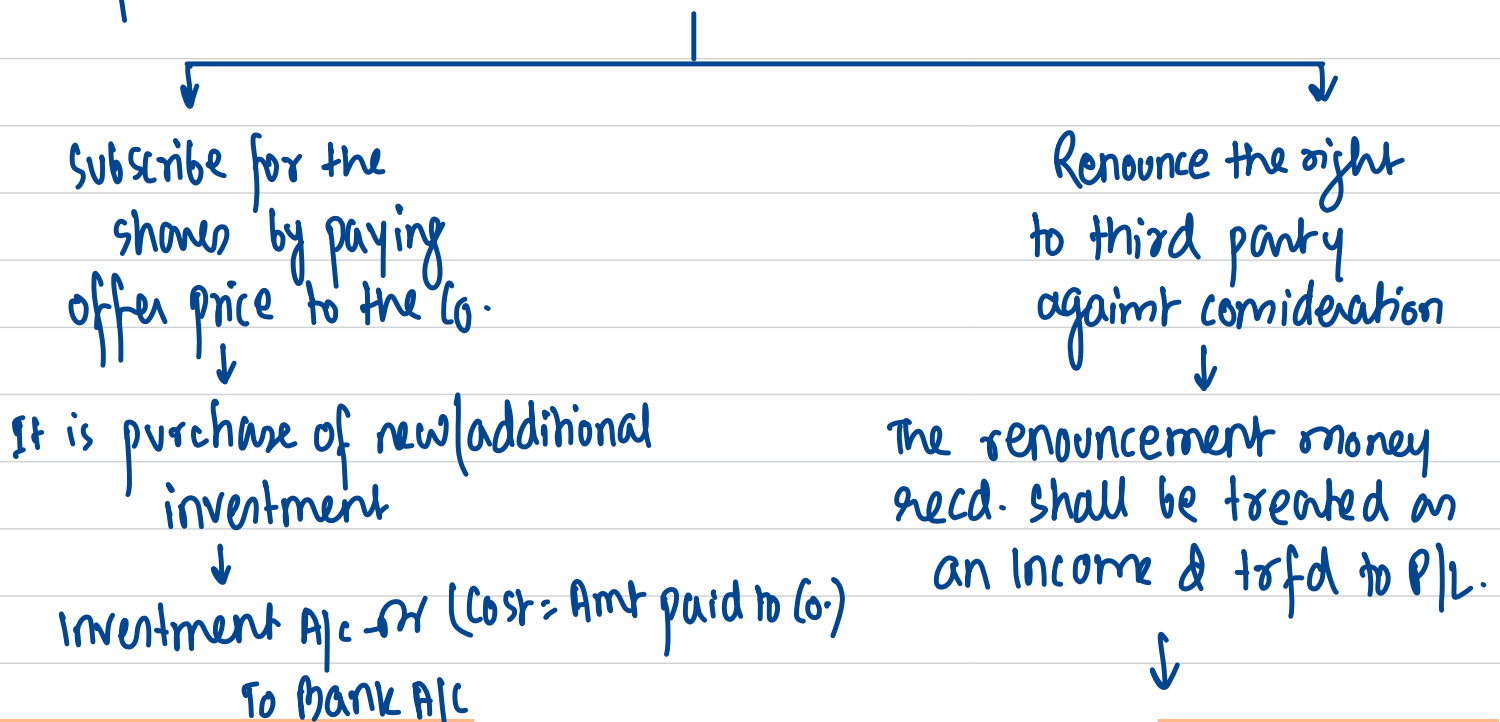 Subscribe for the
shares by paying
offer price to the Co.
It is purchase of new/additional
investment
Investment A/c Dr (Cost = Amt paid to Co.)
To Bank A/c
Renounce the right
to third party
against consideration
The renouncement money
recd. shall be treated as
an Income & trfd to P/L.